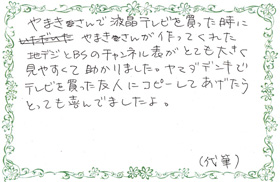 やまきさんで液晶テレビを買った時に
やまきさんが作ってくれた
地デジとBSのチャンネル表がとても大きく
見やすくて助かりました。ヤマダデンキで
テレビを買った友人にコピーしてあげたら
とっても喜んでましたよ。
(代筆)